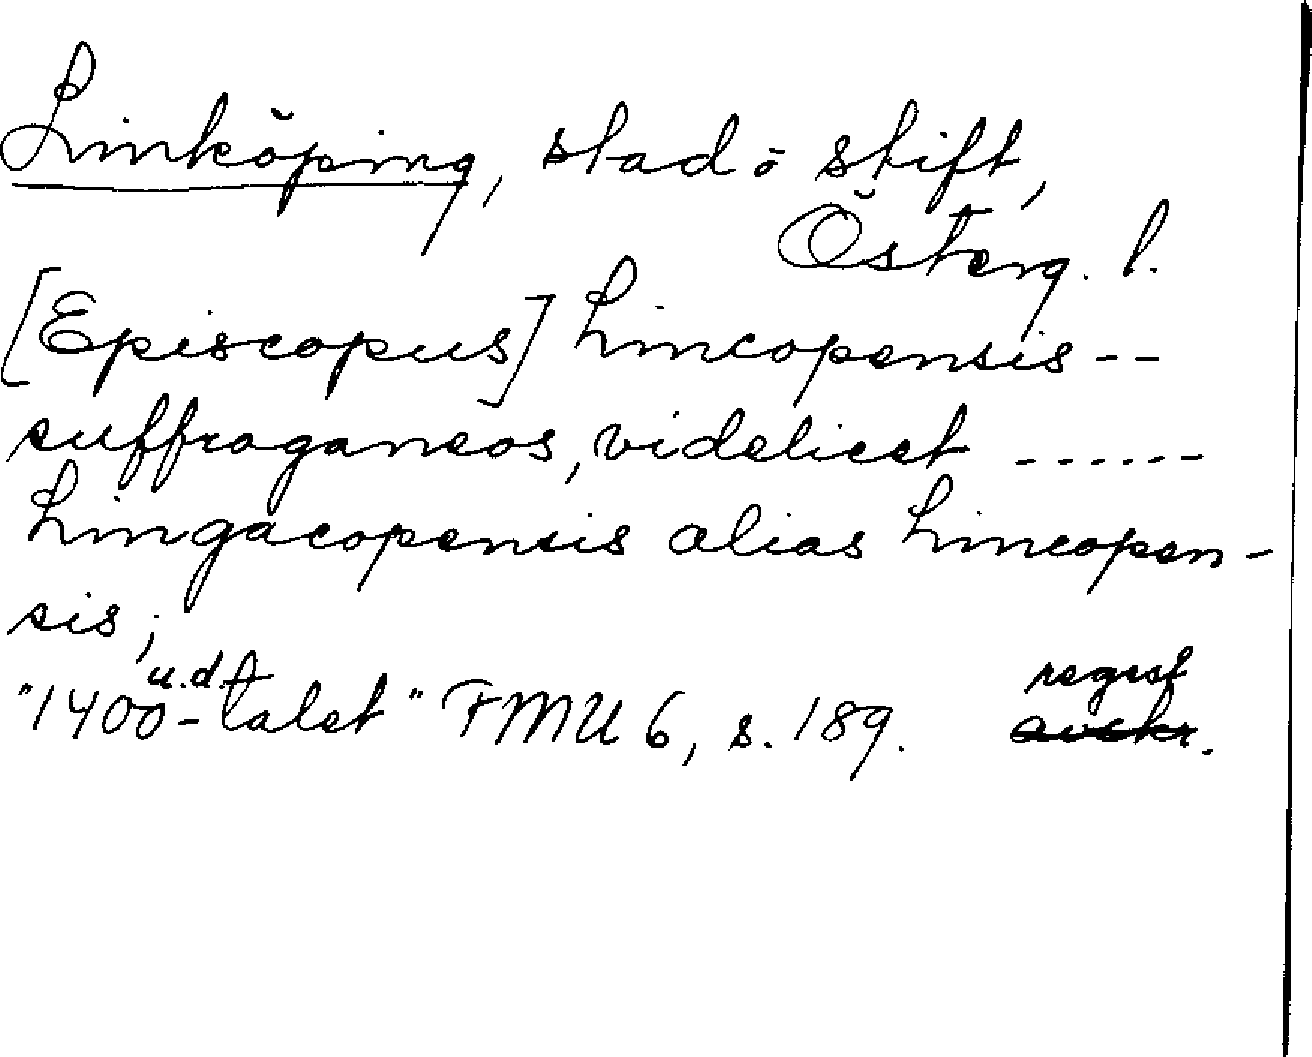 Linköping, stad o stift,
Österg. l.
[Episcopus] Lincopensis --
suffraganeos, videlicet ------
Lingacopensis alias Lincopen-
sis;
u.d. regest
"1400-talet" FMU 6, s. 189. avskr.